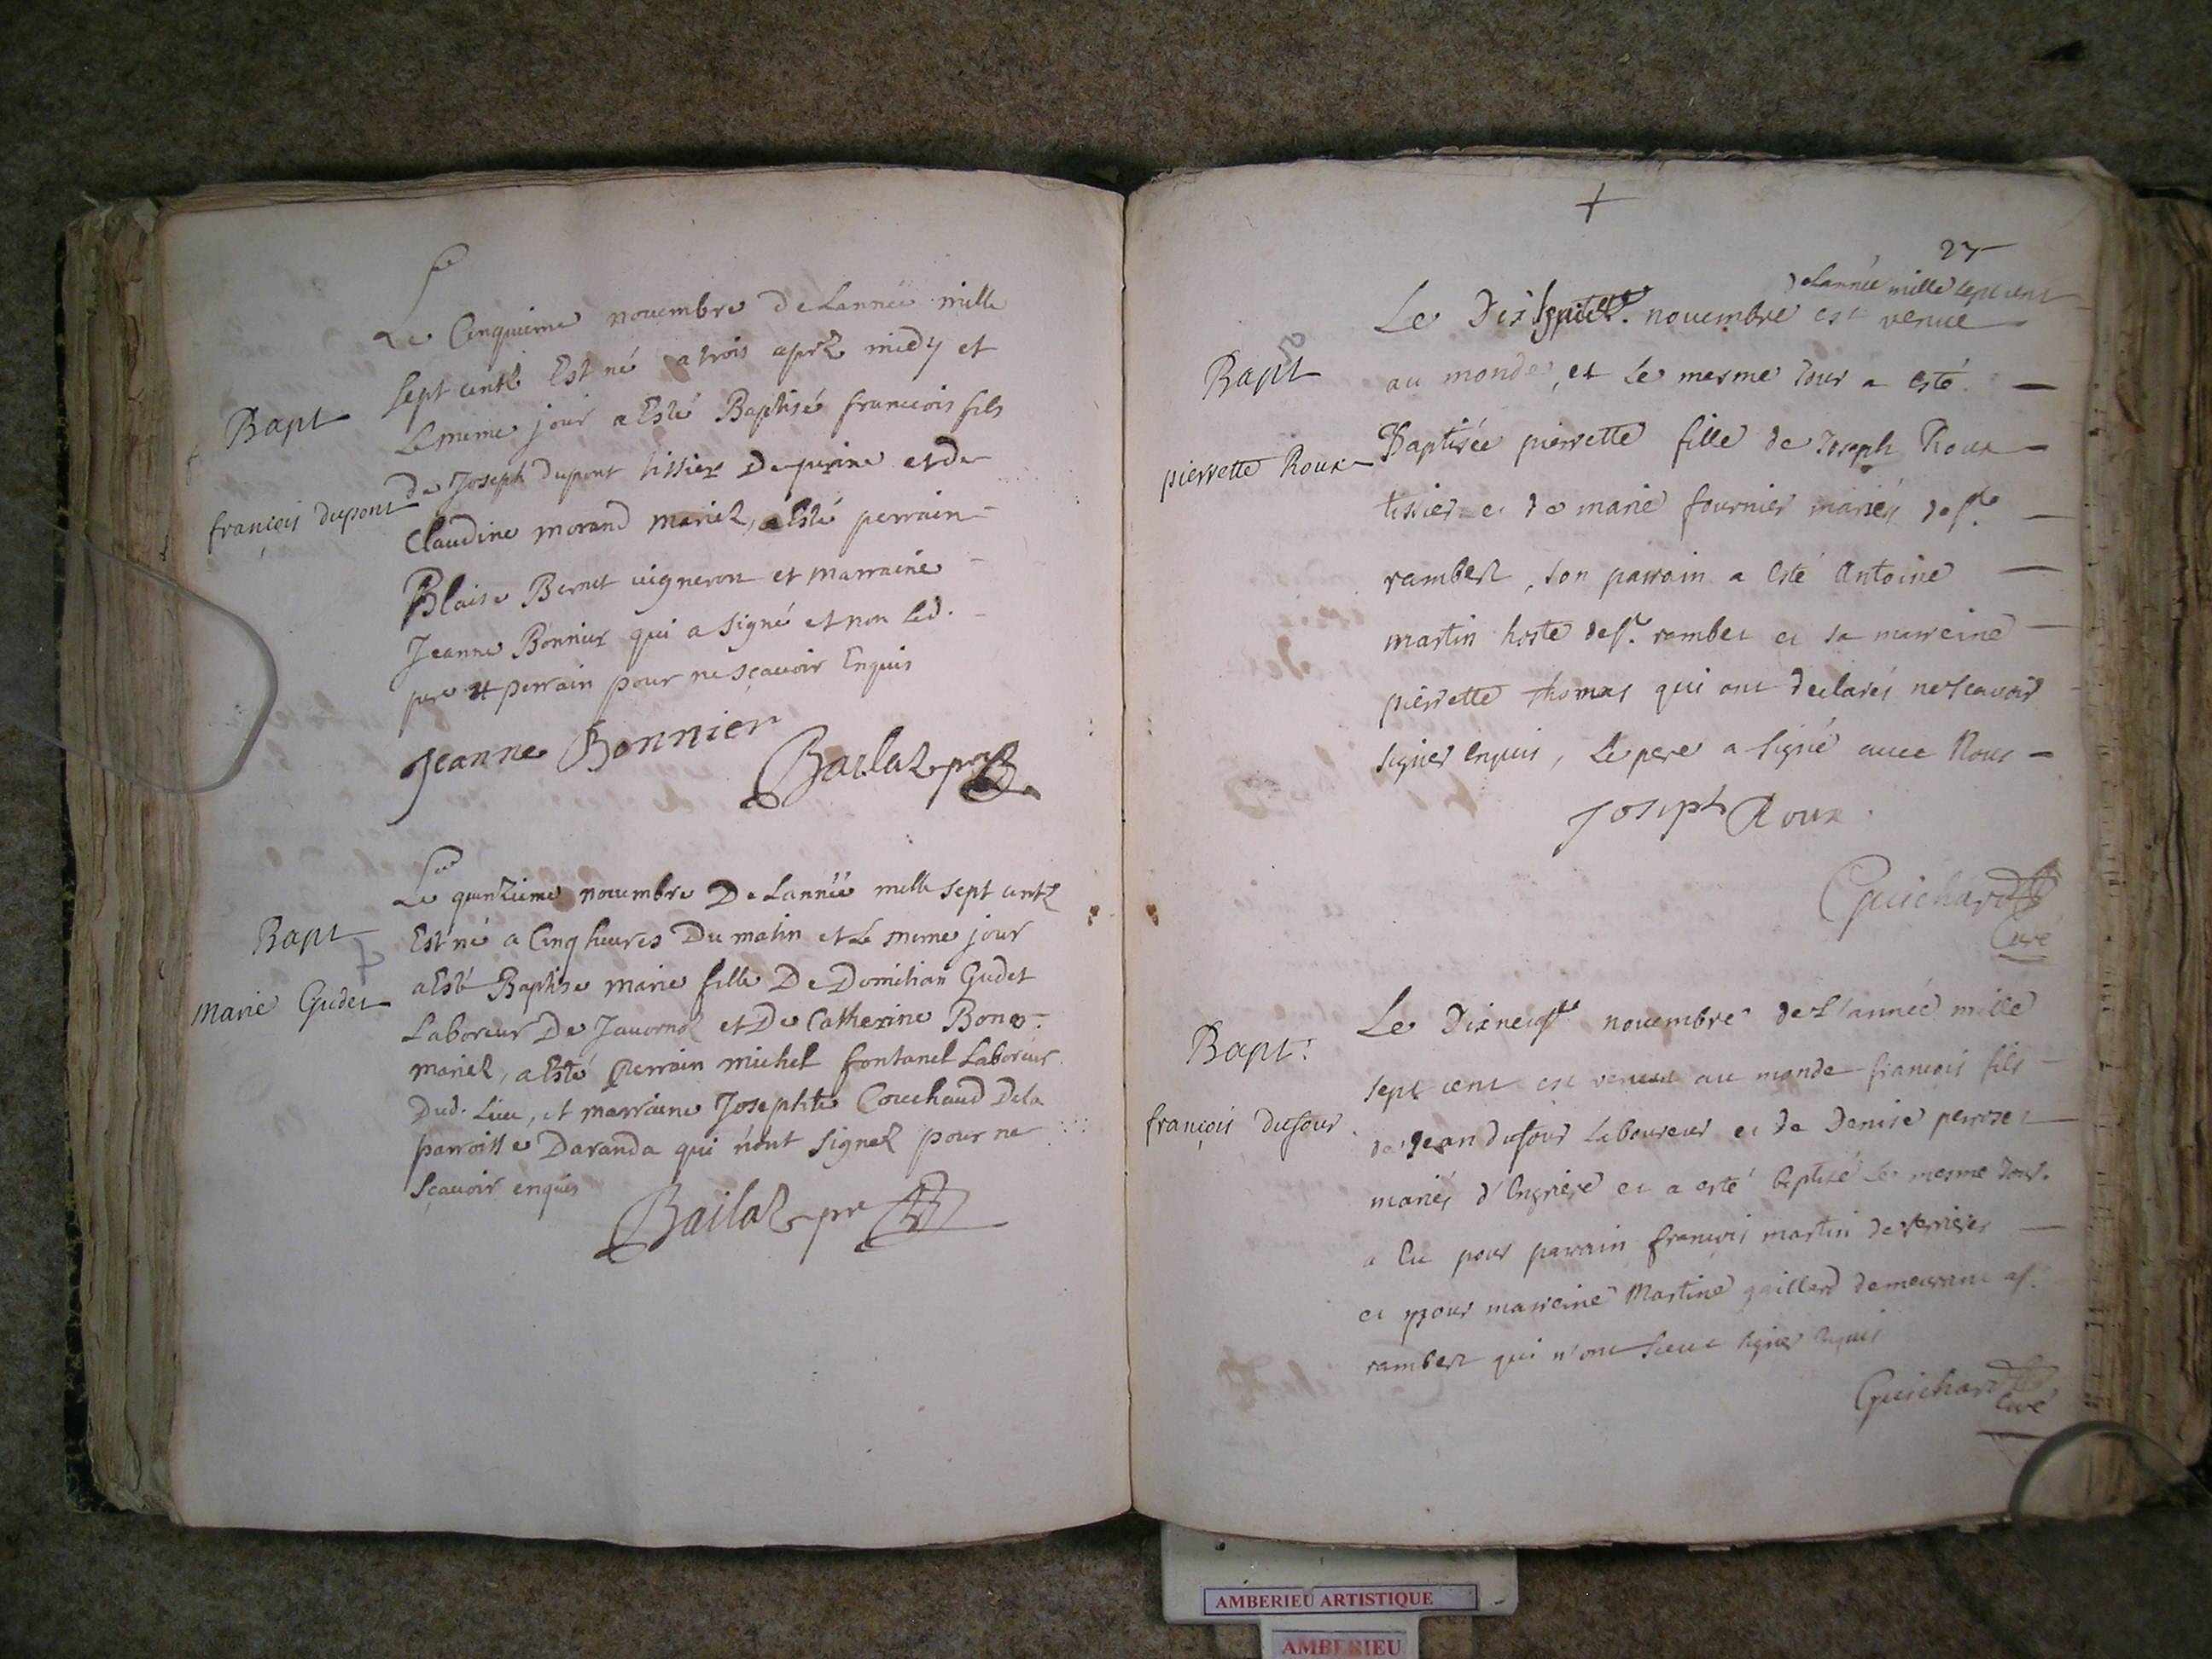 Bapt
françois dupont
Le Cinquieme nouembre De Lanneé mille
sept centz Est né a trois aprèz midy et
Le meme jour a Esté Baptisé francois fils
de Joseph dupont tissier et de
Claudine morand mariez, a Esté perrain
Blaise Bernet uigneron et marraine
Jeanne Bonnier qui a signé et non led.
pere et perrain pour ne sçauoir Enquis
Jeanne Bonnier
Bailaz pre
Bapt
Marie Gudet
Le quinzieme nouembre De Lanneé mille sept centz
Est né a Cinq heures Du matin et Le meme jour
a Esté Baptise marie fille De Domitian Gudet
Laboreur De Jauornoz et De Catherine
mariez, a Esté perrain michel fontanel Laboreur
Dud. Lieu, et marraine Josephte Couchaud Dela
parroisse Daranda qui n'ont signez pour ne
sçauoir enquis
Bailaz pre
27
delannée mille sept cent
Bapt
pierrette Roux
Le nouembre est venue
au monde, et Le mesme Jour a esté
Baptisée pierrette fille de Joseph Roux
tissier et de marie fournier mariés de st.
rambert, son parrain a Esté Antoine
martin hoste de st. rambert et sa marreine
pierrette Thomas qui ont declarés ne scavoir
signer enquis, Le pere a signé avec Nous
Joseph Roux
Guichard
Curé
Bapt:
françois dufour
Le Dixneufe novembre de L'année mille
sept cent est venu au monde francois fils
de Jean dufour Laboureur et de Denise
mariés et a esté baptisé Le mesme Jour.
a Eu pour parrain francois martin
et pour marreine Martine gaillard demeurant a st.
rambert qui n'ont sceut signer enquis
Guichard
Curé
AMBERIEU ARTISTIQUE
AMBERIEU